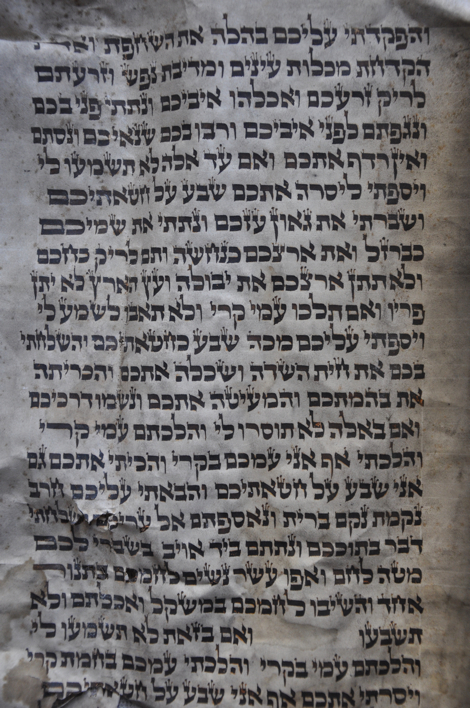 והפקדתי עליכם בהלה את השחפת ואת
הקדחת מכלות עינים ומדיבת נפש וזרעתם
לריק זרעכם ואכלהו איביכם ונתתי פני בכם
ונגפתם לפני איביכם ורדו בכם שנאיכם ונסתם
ואין רדף אתכם ואם עד אלה לא תשמעו לי
ויספתי ליסרה אתכם שבע על חטאתיכם
ושברתי את גאון עזכם ונתתי את שמיכם
כברזל ואת ארצכם כנחשה ותם לריק כחכם
ולא תתן ארצכם את יבולה ועץ הארץ לא יתן
פריו ואם תלכו עמי קרי ולא תאבו לשמע לי
ויספתי עליכם מכה שבע כחטאתיכם והשלחתי
בכם את חית השדה ושכלה אתכם והכריתה
את בהמתכם והמעיטה אתכם ונשמו דרכיכם
ואם באלה לא תוסרו לי והלכתם עמי קרי
והלכתי אף אני עמכם בקרי והכיתי אתכם גם
אני שבע על חטאתיכם והבאתי עליכם חרב
נקמת נקם ברית ונאספתם אל ושלחתי
דבר בתוככם ונתתם ביד אויב בשברי לכם
מטה לחם ואפו עשר נשים לחמכם בתנור
אחד והשיבו לחמכם במשקל ואכלתם ולא
תשבעו ואם בזאת לא תשמעו לי
והלכתם עמי בקרי והלכתי עמכם בחמת קרי
ויסרתי אתכם אף אני שבע על חטאתיכם